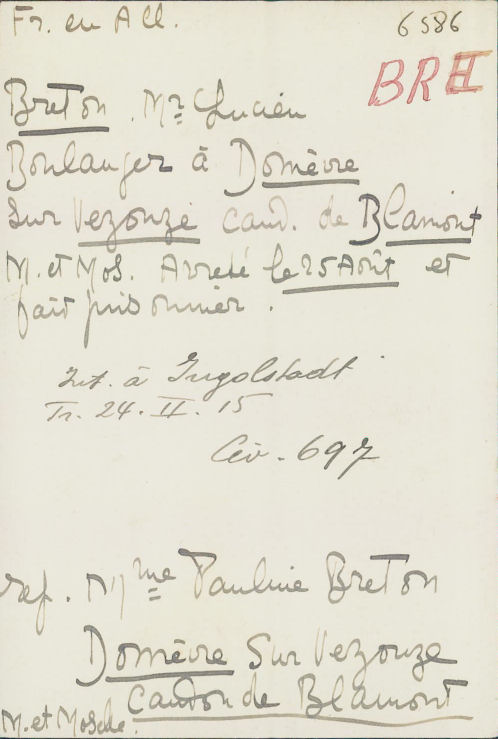 Fr. en All.
6586
BRE
Breton. Mr Lucien
Boulanger à Domèvre
sur Vezouze cant. de Blamont
M. et Mos. Arreté le 25 Août et
fait prisonnier.
Int. à Ingolstadt
Tr. 24. II. 15
Civ. 697
ref. Mme Pauline Breton
Domèvre sur Vezouze
Canton de Blamont
M. et Moselle.